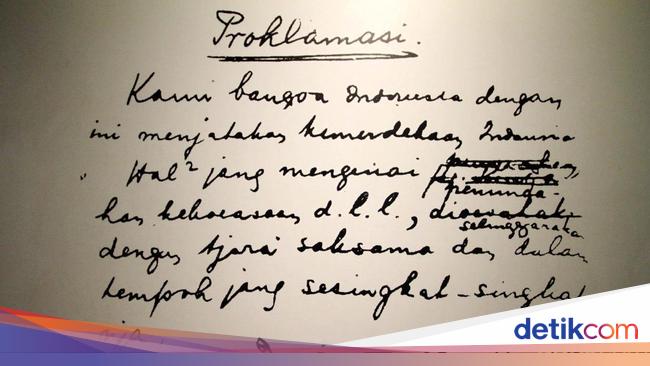 Proklamasi.
Kami bangsa Indonesia dengan
ini menjatakan kemerdekaan Indonesia
Hal² jang mengenai
peminda-
han kekoeasaan d.l.l.,
selenggarakan
dengan tjara saksama dan dalam
tempoh jang sesingkat-singkat
nja.
detikcom